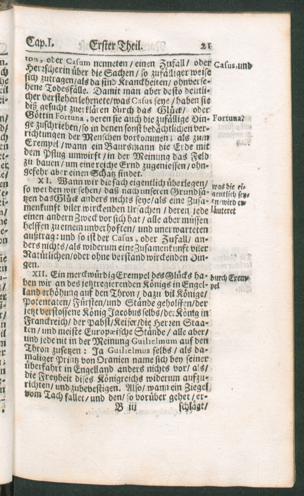 Cap. I. Erster Theil. 21
ton, oder Casum nenneten/ einen Zufall/ oder
Herrscherin über die Sachen/ so zufälliger weise
sich zutragen/ als da sind Kranckheiten/ ohnverse-
hene Todesfälle. Damit man aber desto deutli-
cher verstehen lehrnete/ was Casus seye/ haben sie
diß gesucht zuerklären durch das Glück/ oder
Göttin Fortuna, deren sie auch die zufällige Din-
ge zuschrieben/ so in denen sonst bedächtlichen ver-
richtungen der Menschen vorkommen; als zum
Exempel/ wann ein Baursmann die Erde mit
dem Pflug umwirft/ in der Meinung das Feld
zu bauen/ um eine reiche Ernd zugeniessen/ ohn-
gefehr aber einen Schatz findet.
XI. Wann wir die sach eigentlich überlegen/
so werden wir sehen/ daß nach unseren Grundsä-
tzen das Glück anders nichts seye/ als eine Zusa-
menkunft viler wirckenden Ursachen/ deren jede
einen andern Zweck vor sich hat/ alle aber müssen
helffen zu einem unverhofften/ und unerwarteten
außtrag: und so ist der Casus, oder Zufall/ an-
ders nichts/ als widerum eine Zusamenkunft viler
Natürlichen/ oder ohne verstand wirckenden Din-
gen.
XII. Ein merckwürdig Exempel des Glücks ha-
ben wir an des jetztregierenden Königs in Engel-
land erhöhung auf den Thron/ dazu vil Könige/
Potentaten/ Fürsten/ und Stände geholffen/ der
jetzt verstossene König Jacobus selbs/ der König in
Franckreich/ der Pabst/ Keiser/ die Herren Staa-
ten/ und meiste Europeische Stände/ alle aber/
und jede nit in der Meinung Guilielmum auf den
Thron zusetzen: Ja Guilielmus selbs/ als da-
maliger Printz von Oranien name sich ben seiner
überfahrt in Engelland anders nichts vor/ als/
die Freyheit dises Königreichs widerum aufzu-
richten/ und zubevestigen. Also/ wann ein Ziegel
vom Tach fallet/ und den/ so vorüber gehet/ er-
B iij schlägt/
Casus, und
Fortuna?
was die ei-
gentlich sey-
en/ wird er-
läuteret
durch Exem-
pel